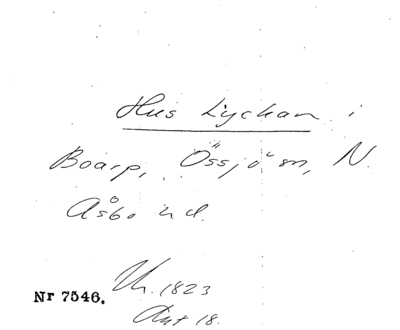 Hus Lyckan i
Boarp, Össjö sn, N.
Åsbo hd.
Nr 7546. Ur. 1823
Akt 18.